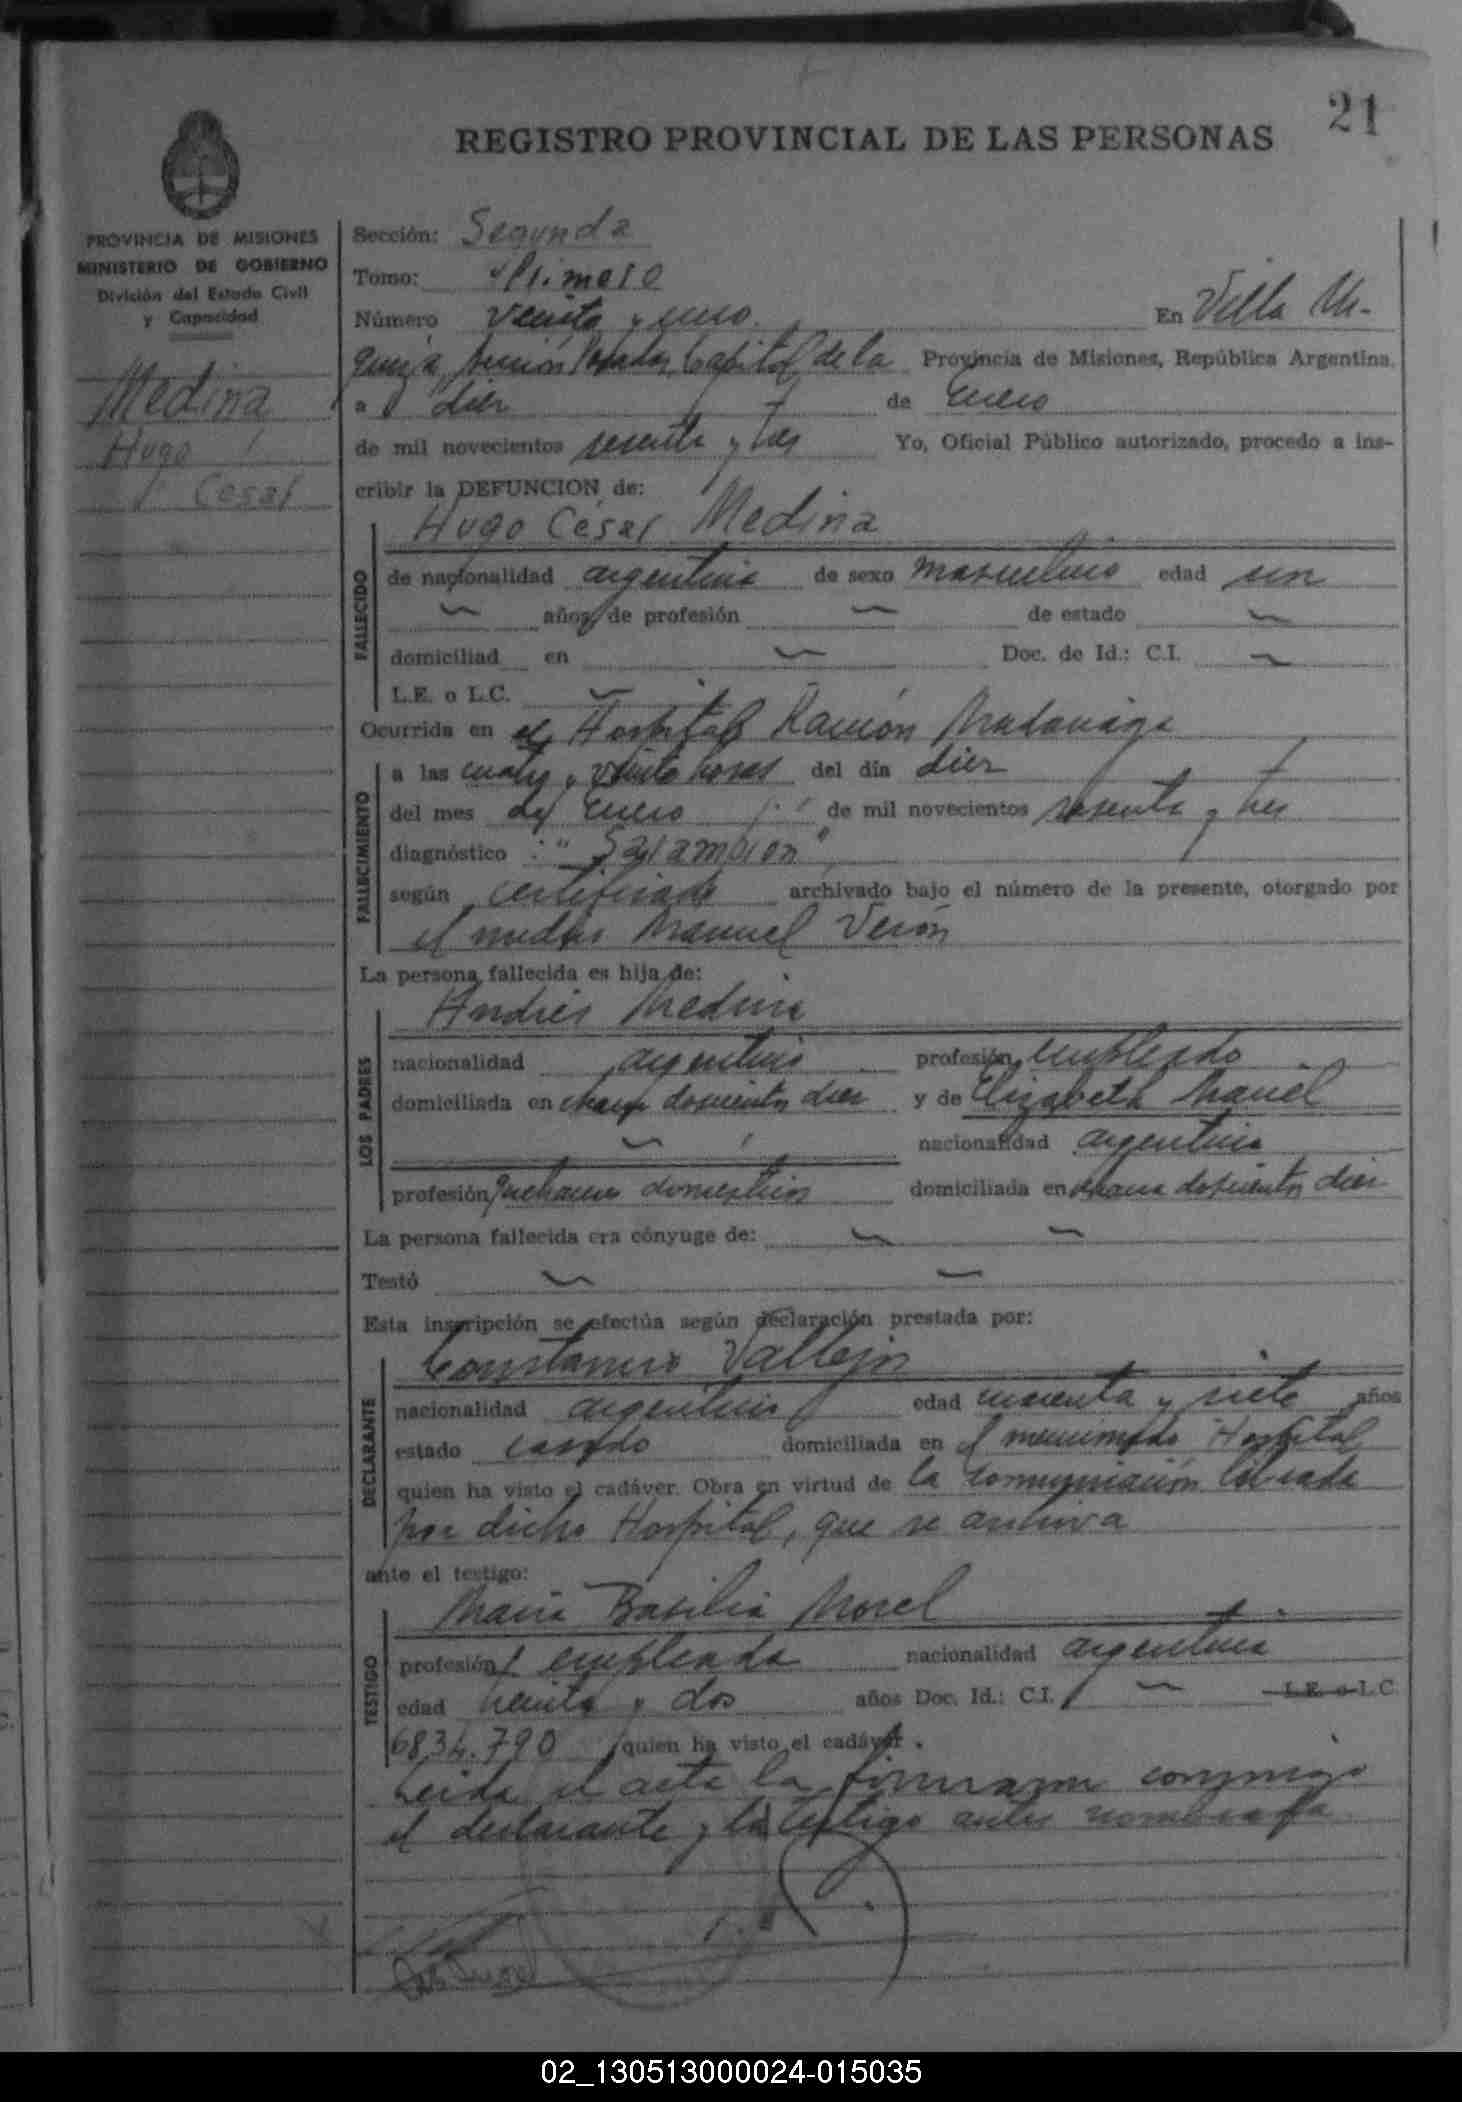 21
REGISTRO PROVINCIAL DE LAS PERSONAS
PROVINCIA DE MISIONES
MINISTERIO DE GOBIERNO
División del Estado Civil
y Capacidad
Medina
Hugo
Cesar
Sección: Segunda
Tomo: Primero
Número veinte y uno. En Villa Ur-
quiza, Posadas, Capital de la Provincia de Misiones, República Argentina,
a diez de Enero
de mil novecientos sesenta y tres Yo, Oficial Público autorizado, procedo a ins-
cribir la DEFUNCION de:
Hugo César Medina
FALLECIDO
de nacionalidad argentina de sexo masculino edad un
años de profesión de estado
domiciliad en Doc. de Id.: C.I.
L.E. o L.C.
Ocurrida en el Hospital Ramón Madariaga
FALLECIMIENTO
a las cuatro y veinte horas del día diez
del mes de Enero de mil novecientos sesenta y tres
diagnóstico : "Sarampion"
según certificado archivado bajo el número de la presente, otorgado por
el médico Manuel Verón
La persona fallecida es hija de:
LOS PADRES
Andrés Medina
nacionalidad argentino profesión empleado
domiciliada en chacra doscientos diez y de Elizabeth
nacionalidad argentina
profesión quehaceres domésticos domiciliada en chacra doscientos diez
La persona fallecida era cónyuge de:
Testó
Esta inscripción se efectúa según declaración prestada por:
DECLARANTE
Constancio Vallejos
nacionalidad argentino edad cuarenta y siete años
estado casado domiciliada en el mencionado Hospital
quien ha visto el cadáver. Obra en virtud de la comunicación librada
por dicho Hospital, que se archiva
ante el testigo:
TESTIGO
María Basilia Morel
profesión empleada nacionalidad argentina
edad treinta y dos años Doc. Id.: C.I. L.E. o L.C.
6834.790 quien ha visto el cadáver.
Leida el acta la firmaron conmigo
el declarante y la testigo antes nombrada
02_130513000024-015035